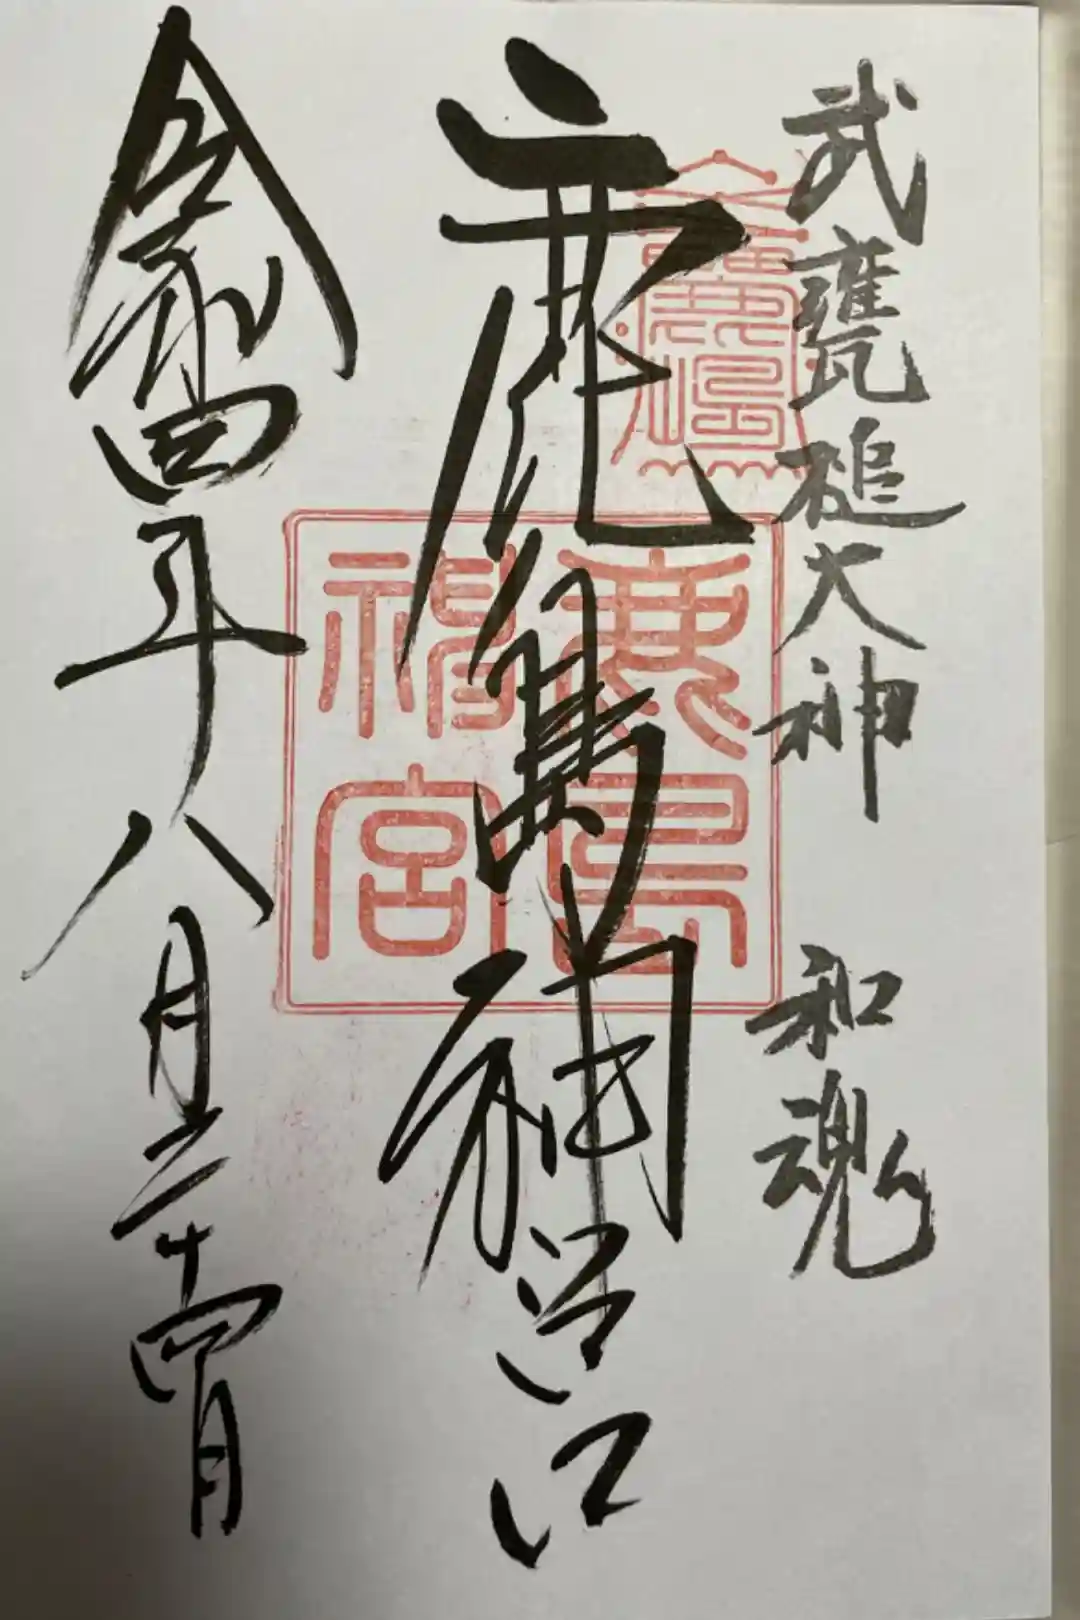 武甕槌大神 和魂
鹿嶋神宮
令和四年八月二十四日
鹿島神宮